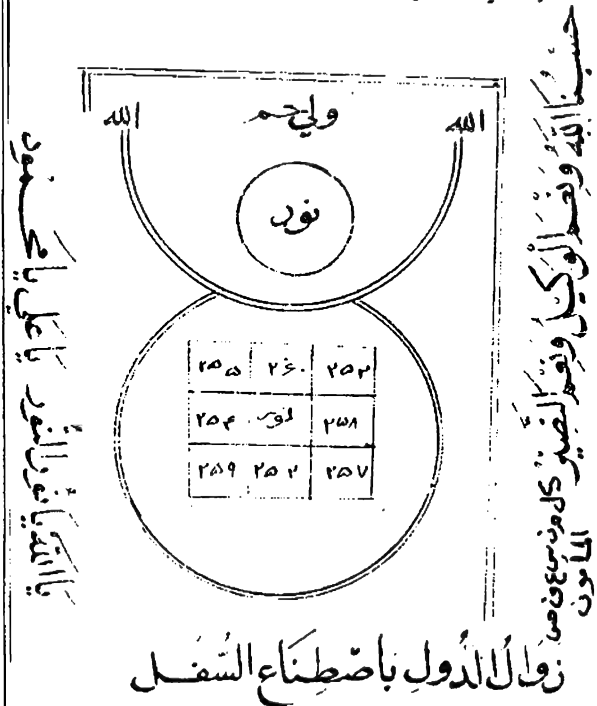 حَسْبُنَا اللّٰهُ وَنِعْمَ الْوَكِيلُ وَنِعْمَ النَّصِيْرُ
المأمون
الله ولي حم الله
نور
٢٥٣ ٢۶٠ ٢٥٥
٢٥٨ نور ٢٥۴
٢٥٧ ٢٥٢ ٢٥٩
يا الله يا نور النُّور يا علي يا محمود
زَوَالُ الدُوَلِ بِاصْطِنَاعِ السُّفَل